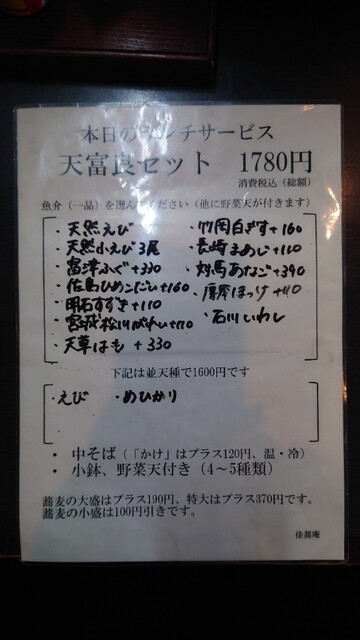 本日のランチサービス
天富良セット 1780円
消費税込（総額）
魚介（一品）を選んでください（他に野菜天が付きます）
・天然えび
・天然小えび3尾
・富津ふぐ+330
・佐島ひめこだい+160
・明石すずき+110
・宮城松川がれい+110
・天草はも +330
・竹岡白ぎす+160
・長崎まあじ+110
・対馬あなご+390
・ほっけ
・石川いわし
下記は並天種で1600円です
・えび ・めひかり
・ 中そば（「かけ」はプラス120円、温・冷）
・ 小鉢、野菜天付き（4～5種類）
蕎麦の大盛はプラス190円、特大はプラス370円です。
蕎麦の小盛は100円引きです。
佳蕎庵